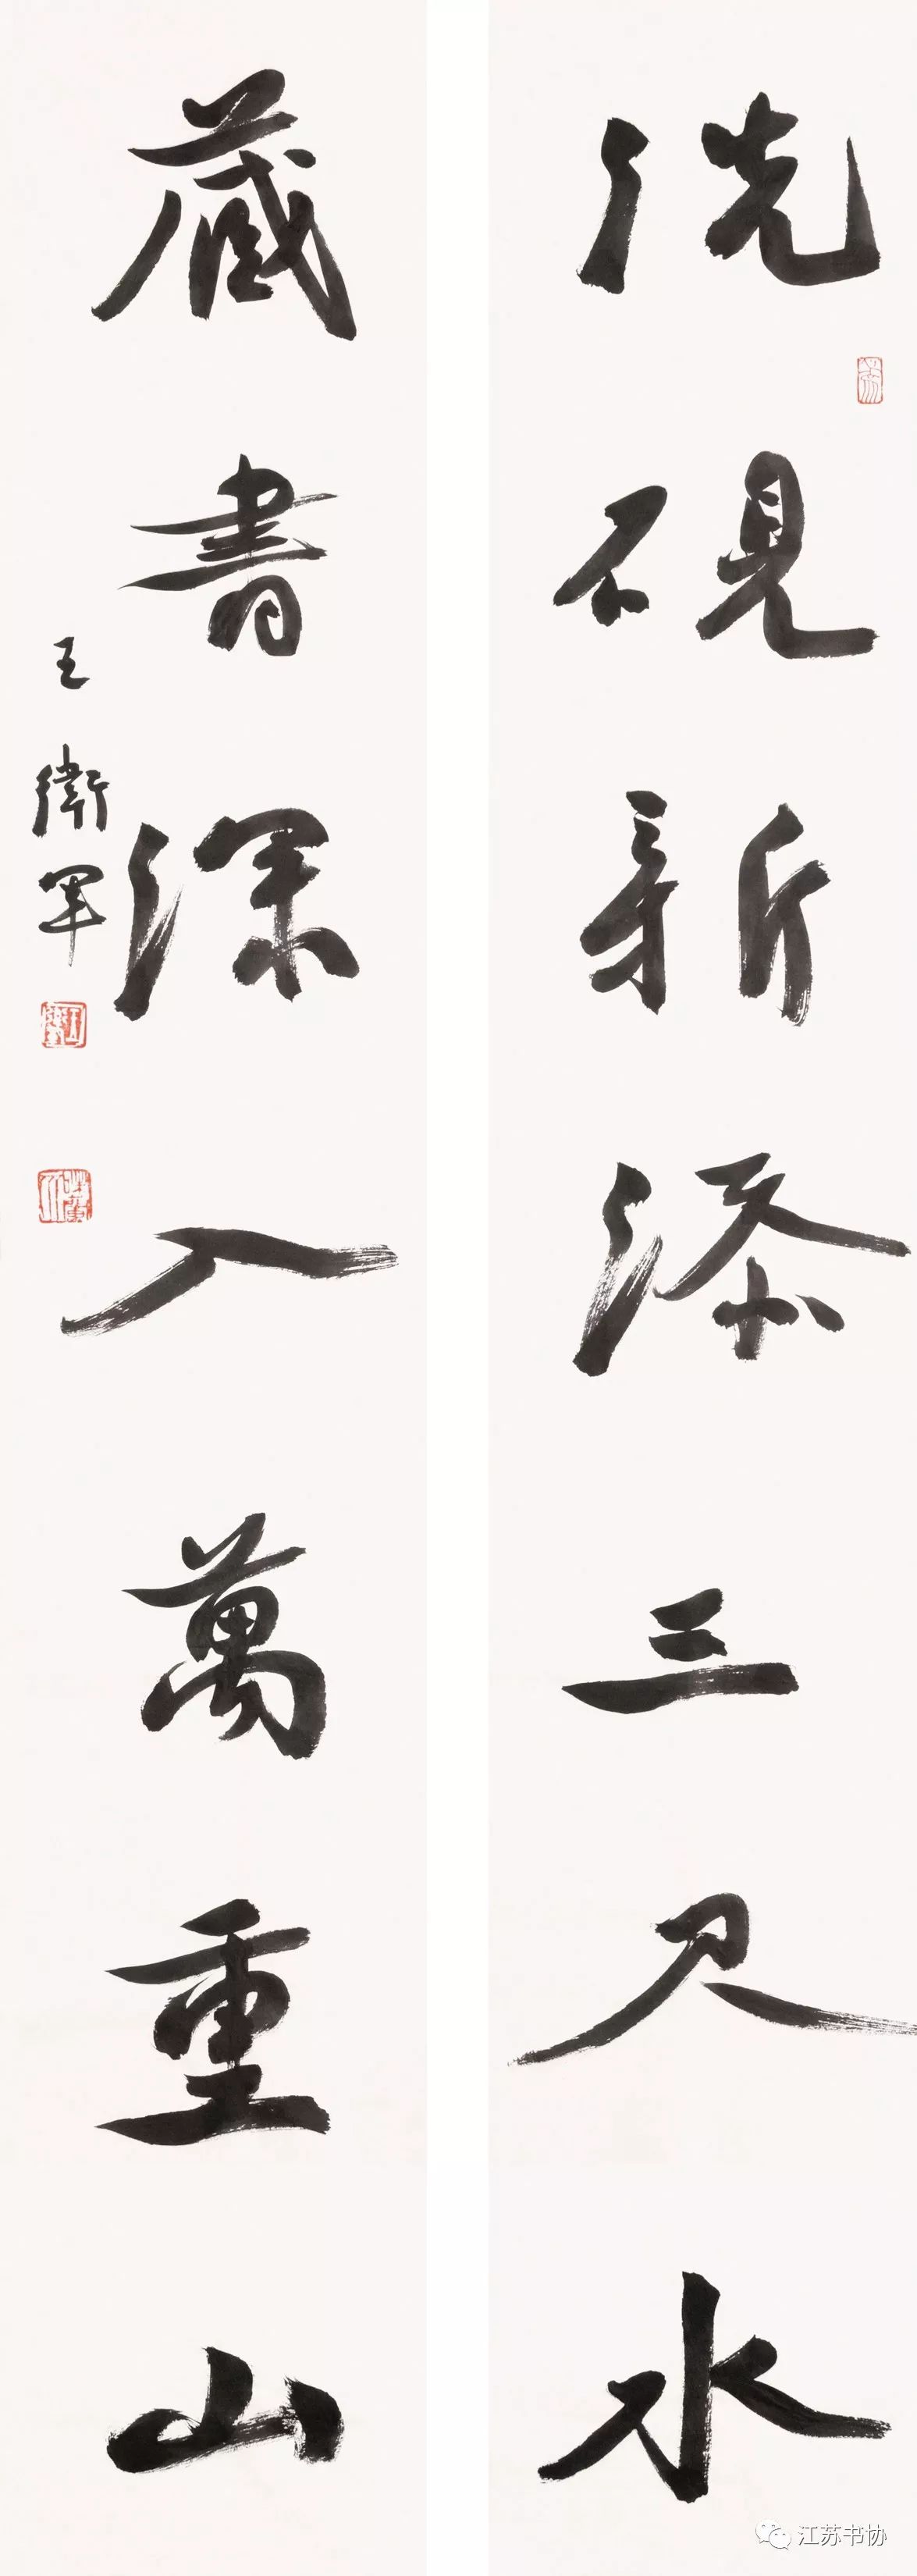 洗硯新添三尺水
藏書深入萬重山
王衛軍
江苏书协